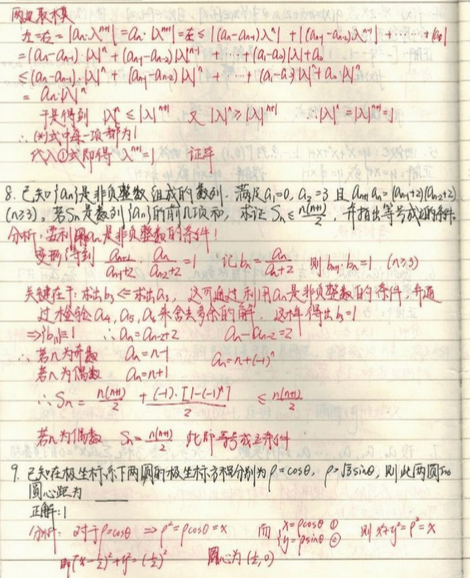 两边取模
左=右=|aₙλⁿ⁺¹|=aₙ·|λ|ⁿ⁺¹=右≤|(aₙ-aₙ₋₁)λⁿ|+|(aₙ₋₁-aₙ₋₂)λⁿ⁻¹|+……+|a₀|
=(aₙ-aₙ₋₁)·|λ|ⁿ+(aₙ₋₁-aₙ₋₂)|λ|ⁿ⁻¹+…+(a₁-a₀)|λ|+a₀
≤(aₙ-aₙ₋₁)·|λ|ⁿ+(aₙ₋₁-aₙ₋₂)|λ|ⁿ+…+(a₁-a₀)|λ|ⁿ+a₀|λ|ⁿ
=aₙ|λ|ⁿ
于是得到 |λ|ⁿ≤|λ|ⁿ⁺¹ 又|λ|ⁿ≥|λ|ⁿ⁺¹ ∴|λ|ⁿ=|λ|ⁿ⁺¹=1
∴ 式中每一项都为1
代入①式即得 λⁿ⁺¹=1 证毕
8. 已知{aₙ}是非负整数组成的数列. 满足a₁=0, a₂=3 且 aₙ₊₁aₙ=(aₙ₋₁+2)(aₙ₋₂+2)
(n≥3), 若Sₙ是数列{aₙ}的前n项和, 求证 Sₙ≤n(n+1)/2, 并指出等号成立的条件.
分析: 要利用aₙ是非负整数的条件!
变形得到 =1 记bₙ= 则bₙ₊₁·bₙ=1. (n≥3)
关键在于: 求出b₃⇐求出a₃, 这可通过利用aₙ是非负整数的条件, 并通
过检验a₄, a₅, a₆来舍去多余的解. 这样得出b₃=1
⇒|bₙ|=1 ∴aₙ=aₙ₋₂+2 aₙ-aₙ₋₂=2
∴ 若n为奇数 aₙ=n-1 aₙ=n+(-1)ⁿ
若n为偶数 aₙ=n+1
∴ Sₙ=n(n+1)/2+(-1)·[1-(-1)ⁿ]/2 ≤n(n+1)/2
若n为偶数 Sₙ=n(n+1)/2 此即等号成立条件
9. 已知在极坐标系下两圆的极坐标方程分别为ρ=cosθ, ρ=√3sinθ, 则此两圆的
圆心距为____
正解: 1
分析: 对于ρ=cosθ ⇒ρ²=ρcosθ=x 而{x=ρcosθ① y=ρsinθ② 则x²+y²=ρ²=x
即(x-½)²+y²=(½)² 圆心为(½,0)